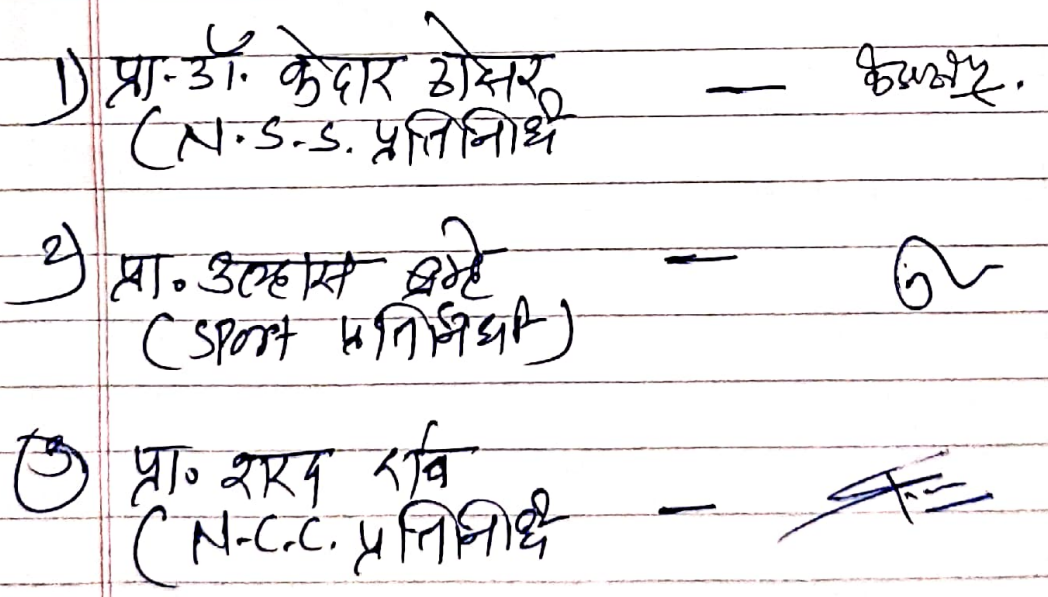 1) प्रा.डॉ. केदार ठोसर —
(N.S.S. प्रतिनिधी
2) प्रा. उल्हास ब्रम्हे —
(Sport प्रतिनिधी)
3) प्रा. शरद —
(N.C.C. प्रतिनिधी —